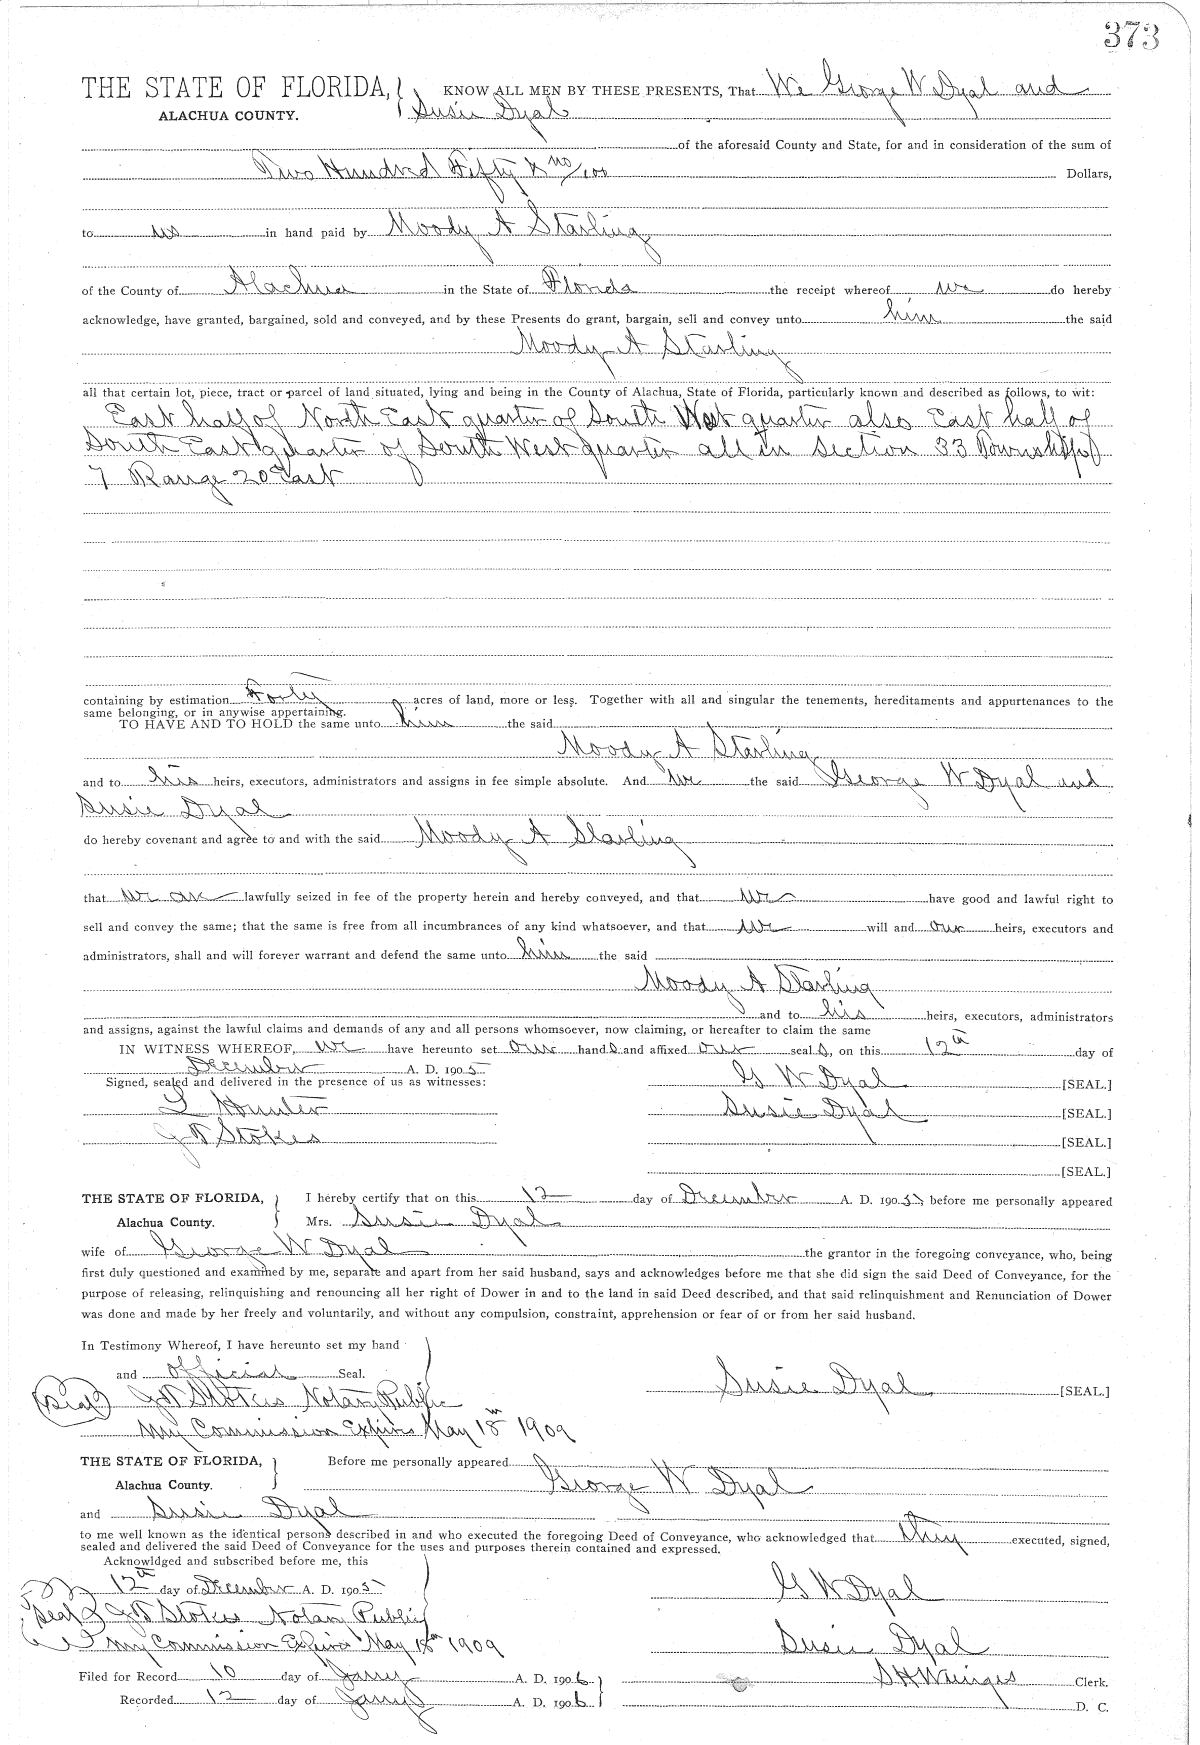 373
THE STATE OF FLORIDA, KNOW ALL MEN BY THESE PRESENTS, That We George W Dyal and
ALACHUA COUNTY. Susie Dyal
of the aforesaid County and State, for and in consideration of the sum of
Two Hundred Fifty & no/100 Dollars,
to us in hand paid by Moody A Starling
of the County of Alachua in the State of Florida the receipt whereof we do hereby
acknowledge, have granted, bargained, sold and conveyed, and by these Presents do grant, bargain, sell and convey unto him the said
Moody A Starling
all that certain lot, piece, tract or parcel of land situated, lying and being in the County of Alachua, State of Florida, particularly known and described as follows, to wit:
East half of North East quarter of South West quarter also East half of
South East quarter of South West quarter all in Section 33 Township
7 Range 20 East
containing by estimation Forty acres of land, more or less. Together with all and singular the tenements, hereditaments and appurtenances to the
same belonging, or in anywise appertaining.
TO HAVE AND TO HOLD the same unto him the said
Moody A Starling
and to his heirs, executors, administrators and assigns in fee simple absolute. And we the said George W Dyal and
Susie Dyal
do hereby covenant and agree to and with the said Moody A Starling
that we are lawfully seized in fee of the property herein and hereby conveyed, and that we have good and lawful right to
sell and convey the same; that the same is free from all incumbrances of any kind whatsoever, and that we will and our heirs, executors and
administrators, shall and will forever warrant and defend the same unto him the said
Moody A Starling
and to his heirs, executors, administrators
and assigns, against the lawful claims and demands of any and all persons whomsoever, now claiming, or hereafter to claim the same
IN WITNESS WHEREOF, we have hereunto set our hands and affixed our seals, on this 12th day of
December A. D. 1905 G W Dyal [SEAL.]
Signed, sealed and delivered in the presence of us as witnesses:
L Hunter Susie Dyal [SEAL.]
J N Stokes [SEAL.]
[SEAL.]
THE STATE OF FLORIDA, I hereby certify that on this 12 day of December A. D. 1905, before me personally appeared
Alachua County. Mrs. Susie Dyal
wife of George W Dyal the grantor in the foregoing conveyance, who, being
first duly questioned and examined by me, separate and apart from her said husband, says and acknowledges before me that she did sign the said Deed of Conveyance, for the
purpose of releasing, relinquishing and renouncing all her right of Dower in and to the land in said Deed described, and that said relinquishment and Renunciation of Dower
was done and made by her freely and voluntarily, and without any compulsion, constraint, apprehension or fear of or from her said husband.
In Testimony Whereof, I have hereunto set my hand
and official Seal. Susie Dyal [SEAL.]
Seal J N Stokes Notary Public
My Commission Expires May 18th 1909
THE STATE OF FLORIDA, Before me personally appeared
Alachua County. George W Dyal
and Susie Dyal
to me well known as the identical persons described in and who executed the foregoing Deed of Conveyance, who acknowledged that they executed, signed,
sealed and delivered the said Deed of Conveyance for the uses and purposes therein contained and expressed.
Acknowldged and subscribed before me, this
12th day of December A. D. 1905 G W Dyal
Seal J N Stokes Notary Public
My Commission Expires May 18th 1909 Susie Dyal
Filed for Record 10 day of Janry A. D. 1906 S H Wienges Clerk.
Recorded 12 day of Janry A. D. 1906 D. C.